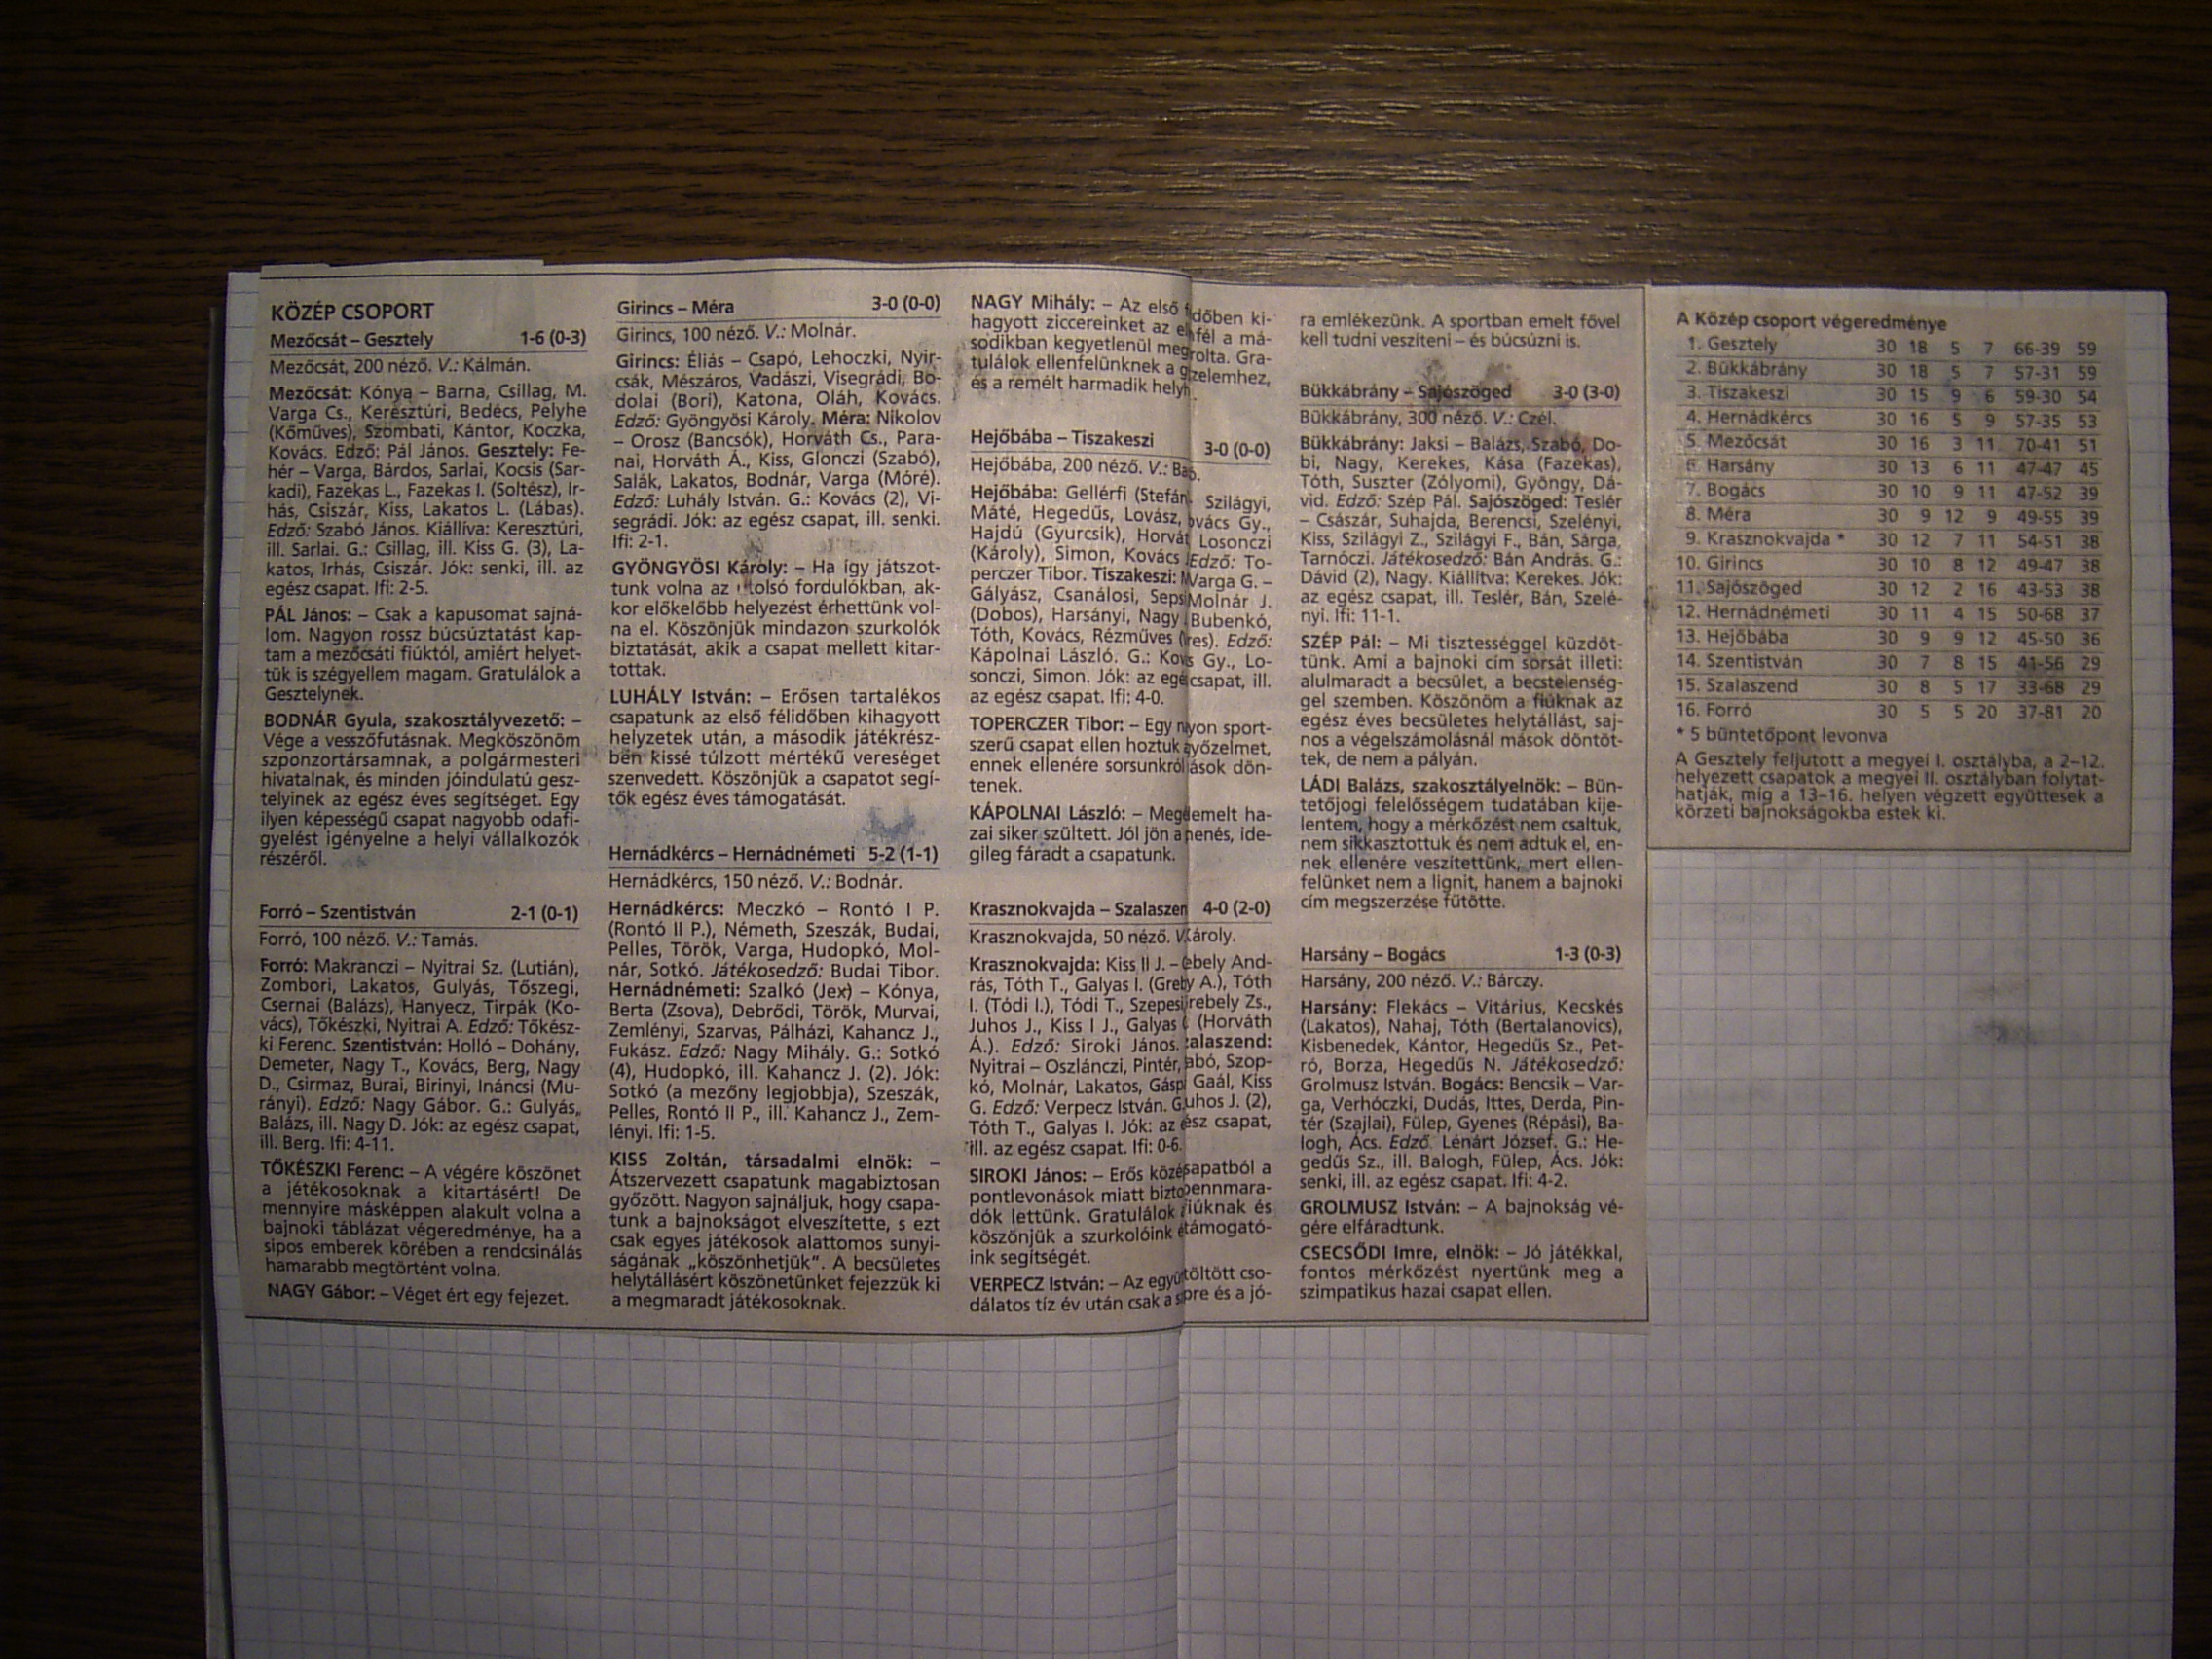 KÖZÉP CSOPORT
Mezőcsát – Gesztely 1-6 (0-3)
Mezőcsát, 200 néző. V.: Kálmán.
Mezőcsát: Kónya – Barna, Csillag, M.
Varga Cs., Keresztúri, Bedécs, Pelyhe
(Kőműves), Szombati, Kántor, Koczka,
Kovács. Edző: Pál János. Gesztely: Fe-
hér – Varga, Bárdos, Sarlai, Kocsis (Sar-
kadi), Fazekas L., Fazekas I. (Soltész), Ir-
hás, Csiszár, Kiss, Lakatos L. (Lábas).
Edző: Szabó János. Kiállíva: Keresztúri,
ill. Sarlai. G.: Csillag, ill. Kiss G. (3), La-
katos, Irhás, Csiszár. Jók: senki, ill. az
egész csapat. Ifi: 2-5.
PÁL János: – Csak a kapusomat sajná-
lom. Nagyon rossz búcsúztatást kap-
tam a mezőcsáti fiúktól, amiért helyet-
tük is szégyellem magam. Gratulálok a
Gesztelynek.
BODNÁR Gyula, szakosztályvezető: –
Vége a vesszőfutásnak. Megköszönöm
szponzortársamnak, a polgármesteri
hivatalnak, és minden jóindulatú gesz-
telyinek az egész éves segítséget. Egy
ilyen képességű csapat nagyobb odafi-
gyelést igényelne a helyi vállalkozók
részéről.
Forró – Szentistván 2-1 (0-1)
Forró, 100 néző. V.: Tamás.
Forró: Makranczi – Nyitrai Sz. (Lutián),
Zombori, Lakatos, Gulyás, Tőszegi,
Csernai (Balázs), Hanyecz, Tirpák (Ko-
vács), Tőkészki, Nyitrai A. Edző: Tőkész-
ki Ferenc. Szentistván: Holló – Dohány,
Demeter, Nagy T., Kovács, Berg, Nagy
D., Csirmaz, Burai, Birinyi, Ináncsi (Mu-
rányi). Edző: Nagy Gábor. G.: Gulyás,
Balázs, ill. Nagy D. Jók: az egész csapat,
ill. Berg. Ifi: 4-11.
TŐKÉSZKI Ferenc: – A végére köszönet
a jétékosoknak a kitartásért! De
mennyire másképpen alakult volna a
bajnoki táblázat végeredménye, ha a
sipos emberek körében a rendcsinálás
hamarabb megtörtént volna.
NAGY Gábor: – Véget ért egy fejezet.
Girincs – Méra 3-0 (0-0)
Girincs, 100 néző. V.: Molnár.
Girincs: Éliás – Csapó, Lehoczki, Nyir-
csák, Mészáros, Vadászi, Visegrádi, Bo-
dolai (Bori), Katona, Oláh, Kovács.
Edző: Gyöngyösi Károly. Méra: Nikolov
– Orosz (Bancsók), Horváth Cs., Para-
nai, Horváth Á., Kiss, Glonczi (Szabó),
Salák, Lakatos, Bodnár, Varga (Móré).
Edző: Luhály István. G.: Kovács (2), Vi-
segrádi. Jók: az egész csapat, ill. senki.
Ifi: 2-1.
GYÖNGYÖSI Károly: – Ha így játszot-
tunk volna az utolsó fordulókban, ak-
kor előkelőbb helyezést érhettünk vol-
na el. Köszönjük mindazon szurkolók
biztatását, akik a csapat mellett kitar-
tottak.
LUHÁLY István: – Erősen tartalékos
csapatunk az első félidőben kihagyott
helyzetek után, a második játékrész-
ben kissé túlzott mértékű vereséget
szenvedett. Köszönjük a csapatot segí-
tők egész éves támogatását.
Hernádkércs – Hernádnémeti 5-2 (1-1)
Hernádkércs, 150 néző. V.: Bodnár.
Hernádkércs: Meczkó – Rontó I P.
(Rontó II P.), Németh, Szeszák, Budai,
Pelles, Török, Varga, Hudopkó, Mol-
nár, Sotkó. Játékosedző: Budai Tibor.
Hernádnémeti: Szalkó (Jex) – Kónya,
Berta (Zsova), Debrődi, Török, Murvai,
Zemlényi, Szarvas, Pálházi, Kahancz J.,
Fukász. Edző: Nagy Mihály. G.: Sotkó
(4), Hudopkó, ill. Kahancz J. (2). Jók:
Sotkó (a mezőny legjobbja), Szeszák,
Pelles, Rontó II P., ill. Kahancz J., Zem-
lényi. Ifi: 1-5.
KISS Zoltán, társadalmi elnök: –
Átszervezett csapatunk magabiztosan
győzött. Nagyon sajnáljuk, hogy csapa-
tunk a bajnokságot elveszítette, s ezt
csak egyes játékosok alattomos sunyi-
ságának „köszönhetjük". A becsületes
helytállásért köszönetünket fejezzük ki
a megmaradt játékosoknak.
NAGY Mihály: – Az első dőben ki-
hagyott ziccereinket az fél a má-
sodikban kegyetlenül megrolta. Gra-
tulálok ellenfelünknek a zelemhez,
és a remélt harmadik hely
Hejőbába – Tiszakeszi 3-0 (0-0)
Hejőbába, 200 néző. V.:
Hejőbába: Gellérfi (Stefán Szilágyi,
Máté, Hegedűs, Lovász, ovács Gy.,
Hajdú (Gyurcsik), Horvát Losonczi
(Károly), Simon, Kovács Edző: To-
perczer Tibor. Tiszakeszi: Varga G. –
Gályász, Csanálosi, Seps Molnár J.
(Dobos), Harsányi, Nagy Bubenkó,
Tóth, Kovács, Rézműves res). Edző:
Kápolnai László. G.: Kovs Gy., Lo-
sonczi, Simon. Jók: az egé csapat, ill.
az egész csapat. Ifi: 4-0.
TOPERCZER Tibor: – Egy nyon sport-
szerű csapat ellen hoztuk győzelmet,
ennek ellenére sorsunkról ások dön-
tenek.
KÁPOLNAI László: – Megdemelt ha-
zai siker szültett. Jól jön a henés, ide-
gileg fáradt a csapatunk.
Krasznokvajda – Szalaszen 4-0 (2-0)
Krasznokvajda, 50 néző. V károly.
Krasznokvajda: Kiss II J. – ebely And-
rás, Tóth T., Galyas I. (Greby A.), Tóth
I. (Tódi I.), Tódi T., Szepesi rebely Zs.,
Juhos J., Kiss I J., Galyas (Horváth
Á.). Edző: Siroki János. alaszend:
Nyitrai – Oszlánczi, Pintér, abó, Szop-
kó, Molnár, Lakatos, Gásp Gaál, Kiss
G. Edző: Verpecz István. G.uhos J. (2),
Tóth T., Galyas I. Jók: az ész csapat,
ill. az egész csapat. Ifi: 0-6.
SIROKI János: – Erős közé sapatból a
pontlevonások miatt bizto bennmara-
dók lettünk. Gratulálok iúknak és
köszönjük a szurkolóink támogató-
ink segítségét.
VERPECZ István: – Az együ töltött cso-
dálatos tíz év után csak a s pre és a jó-
ra emlékezünk. A sportban emelt fővel
kell tudni veszíteni – és búcsúzni is.
Bükkábrány – Sajószöged 3-0 (3-0)
Bükkábrány, 300 néző. V.: Czél.
Bükkábrány: Jaksi – Balázs, Szabó, Do-
bi, Nagy, Kerekes, Kása (Fazekas),
Tóth, Suszter (Zólyomi), Gyöngy, Dá-
vid. Edző: Szép Pál. Sajószöged: Teslér
– Császár, Suhajda, Berencsi, Szelényi,
Kiss, Szilágyi Z., Szilágyi F., Bán, Sárga,
Tarnóczi. Játékosedző: Bán András. G.:
Dávid (2), Nagy. Kiállítva: Kerekes. Jók:
az egész csapat, ill. Teslér, Bán, Szelé-
nyi. Ifi: 11-1.
SZÉP Pál: – Mi tisztességgel küzdöt-
tünk. Ami a bajnoki cím sorsát illeti:
alulmaradt a becsület, a becstelenség-
gel szemben. Köszönöm a fiúknak az
egész éves becsületes helytállást, saj-
nos a végelszámolásnál mások döntöt-
tek, de nem a pályán.
LÁDI Balázs, szakosztályelnök: – Bün-
tetőjogi felelősségem tudatában kije-
lentem, hogy a mérkőzést nem csaltuk,
nem sikkasztottuk és nem adtuk el, en-
nek ellenére veszítettünk, mert ellen-
felünket nem a lignit, hanem a bajnoki
cím megszerzése fűtötte.
Harsány – Bogács 1-3 (0-3)
Harsány, 200 néző. V.: Bárczy.
Harsány: Flekács – Vitárius, Kecskés
(Lakatos), Nahaj, Tóth (Bertalanovics),
Kisbenedek, Kántor, Hegedűs Sz., Pet-
ró, Borza, Hegedűs N. Játékosedző:
Grolmusz István. Bogács: Bencsik – Var-
ga, Verhóczki, Dudás, Ittes, Derda, Pin-
tér (Szajlai), Fülep, Gyenes (Répási), Ba-
logh, Ács. Edző: Lénárt József. G.: He-
gedűs Sz., ill. Balogh, Fülep, Ács. Jók:
senki, ill. az egész csapat. Ifi: 4-2.
GROLMUSZ István: – A bajnokság vé-
gére elfáradtunk.
CSECSŐDI Imre, elnök: – Jó játékkal,
fontos mérkőzést nyertünk meg a
szimpatikus hazai csapat ellen.
A Közép csoport végeredménye
1. Gesztely 30 18 5 7 66-39 59
2. Bükkábrány 30 18 5 7 57-31 59
3. Tiszakeszi 30 15 9 6 59-30 54
4. Hernádkércs 30 16 5 9 57-35 53
5. Mezőcsát 30 16 3 11 70-41 51
6. Harsány 30 13 6 11 47-47 45
7. Bogács 30 10 9 11 47-52 39
8. Méra 30 9 12 9 49-55 39
9. Krasznokvajda * 30 12 7 11 54-51 38
10. Girincs 30 10 8 12 49-47 38
11. Sajószöged 30 12 2 16 43-53 38
12. Hernádnémeti 30 11 4 15 50-68 37
13. Hejőbába 30 9 9 12 45-50 36
14. Szentistván 30 7 8 15 41-56 29
15. Szalaszend 30 8 5 17 33-68 29
16. Forró 30 5 5 20 37-81 20
* 5 büntetőpont levonva
A Gesztely feljutott a megyei I. osztályba, a 2–12.
helyezett csapatok a megyei II. osztályban folytat-
hatják, míg a 13–16. helyen végzett együttesek a
körzeti bajnokságokba estek ki.